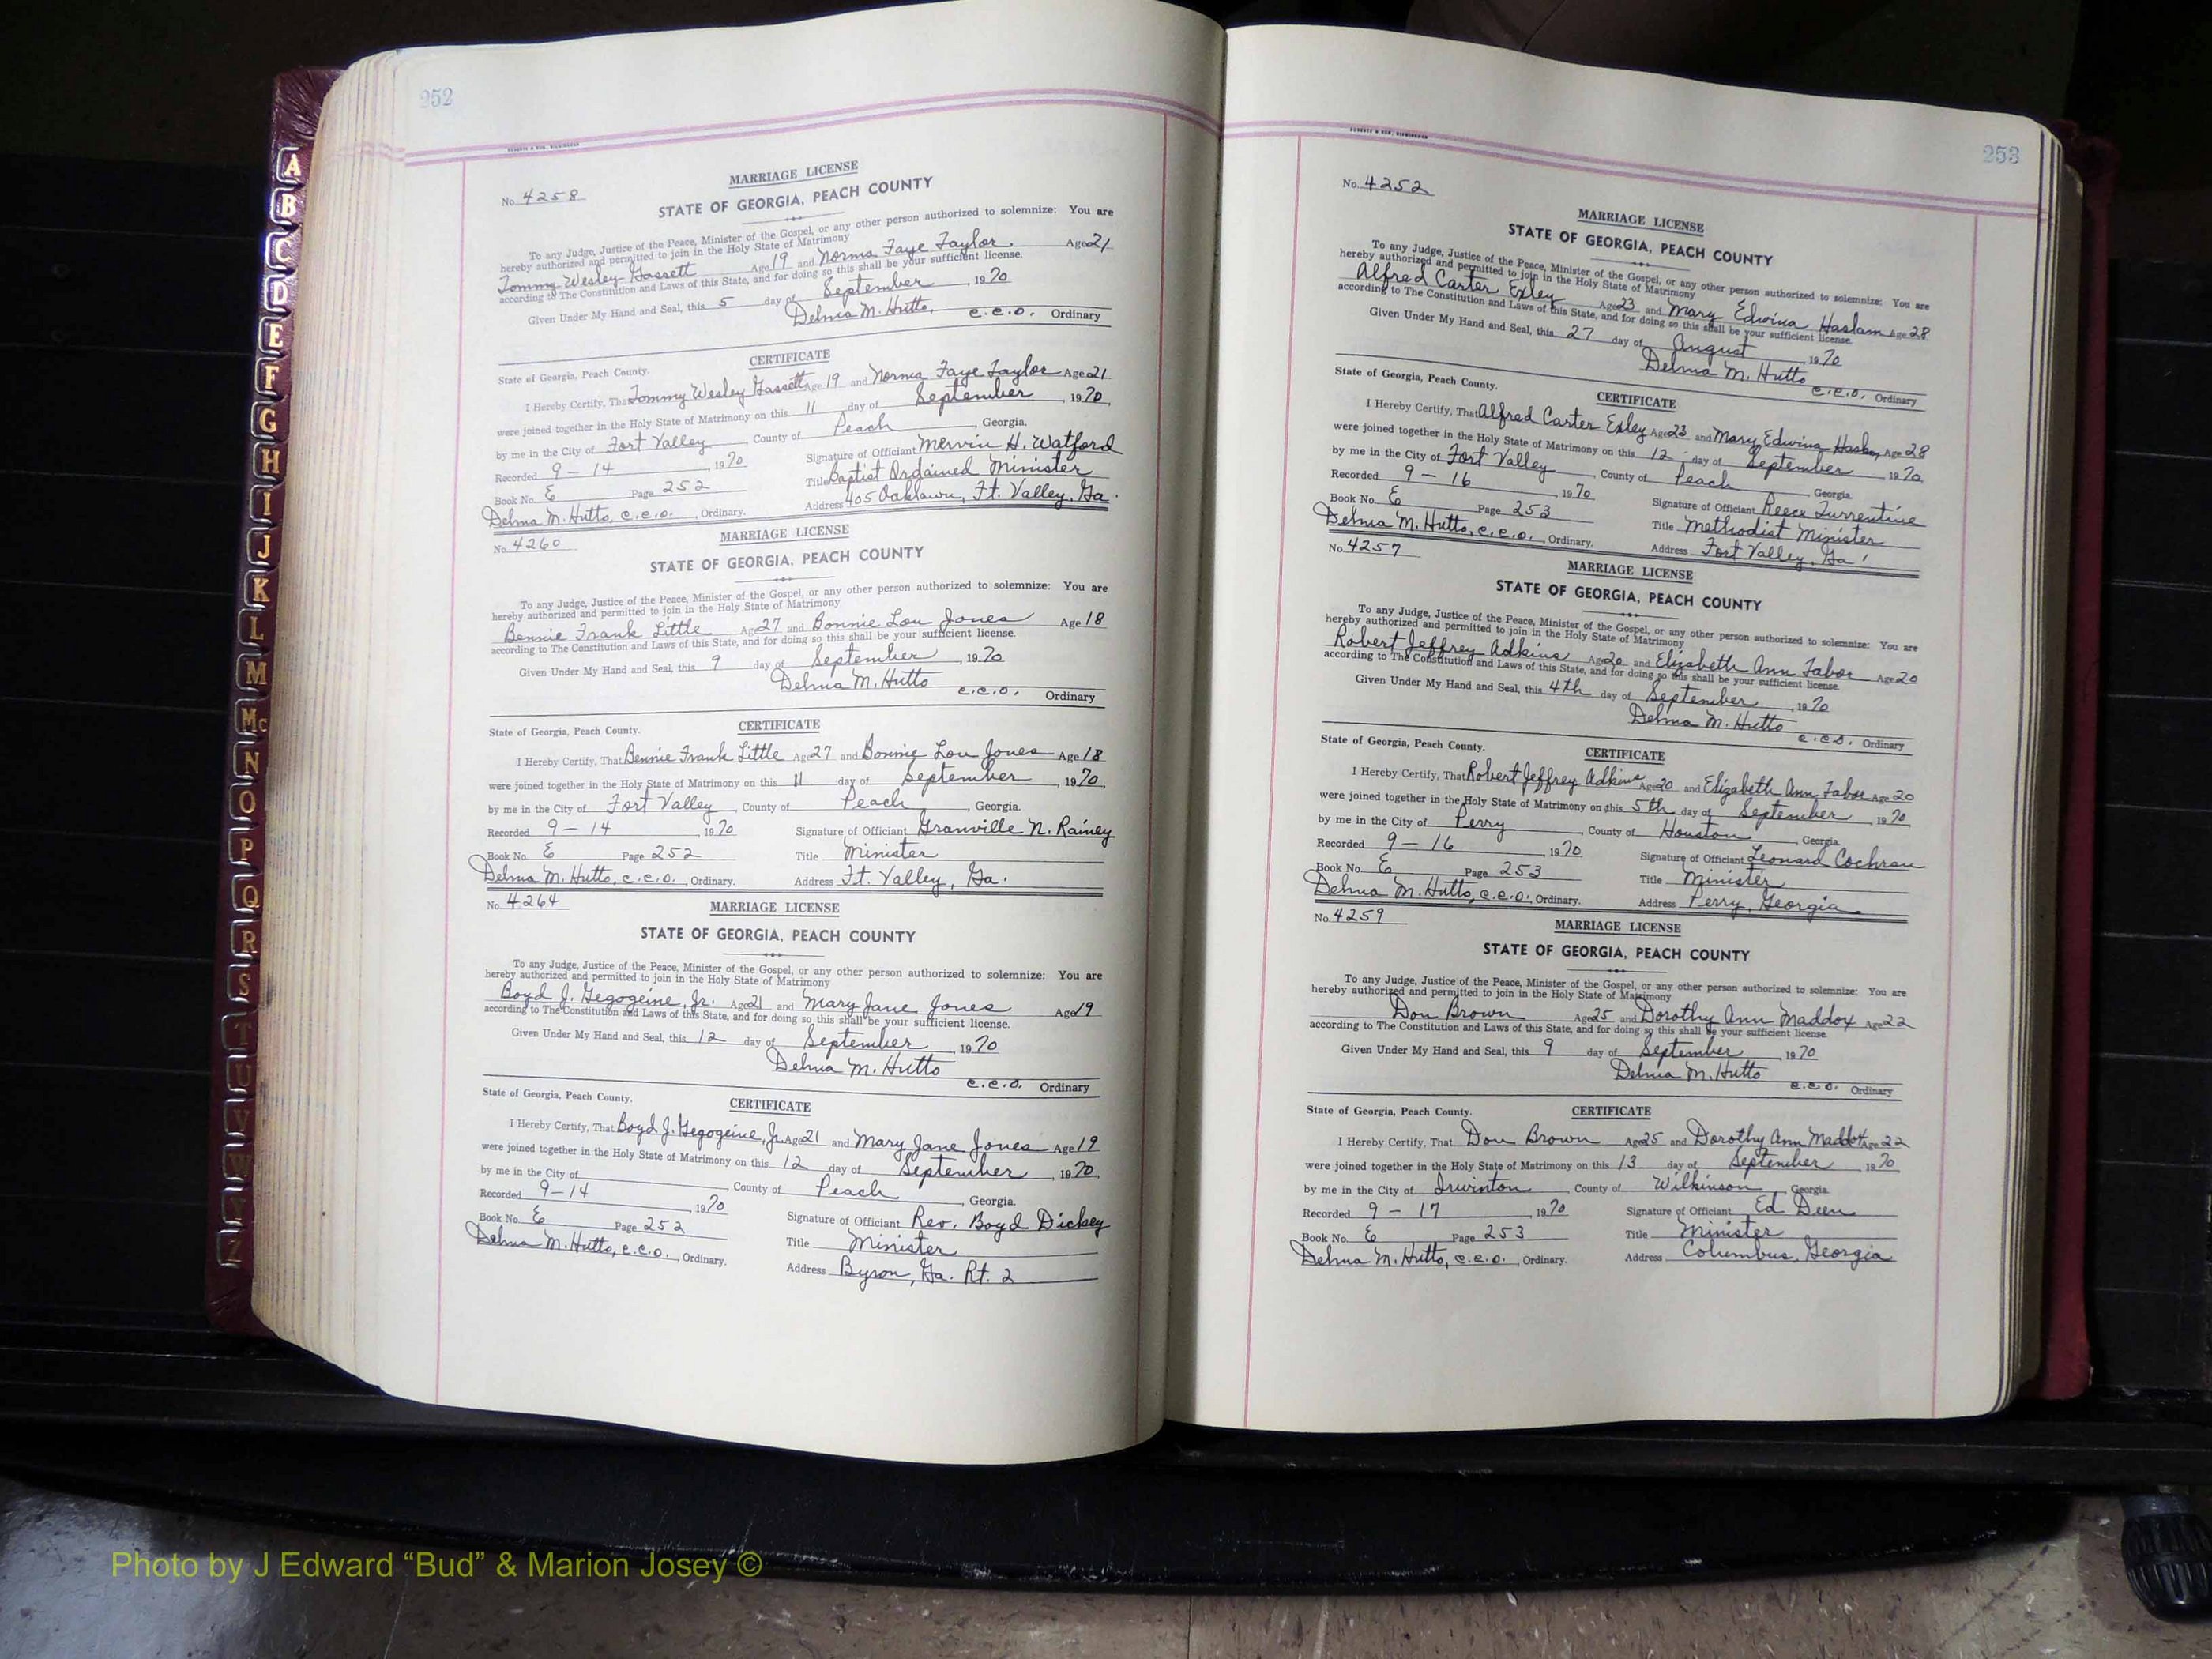 A
B
C
D
E
F
G
H
I
J
K
L
M
Mc
N
O
P
Q
R
S
T
U
V
W
Y
Z
252
MARRIAGE LICENSE
No. 4258
STATE OF GEORGIA, PEACH COUNTY
To any Judge, Justice of the Peace, Minister of the Gospel, or any other person authorized to solemnize: You are
hereby authorized and permitted to join in the Holy State of Matrimony
Tommy Wesley Gassett Age 19 and Norma Faye Taylor Age 21
according to The Constitution and Laws of this State, and for doing so this shall be your sufficient license.
Given Under My Hand and Seal, this 5 day of September, 1970
Delma M. Hutto, C.C.O. Ordinary
CERTIFICATE
State of Georgia, Peach County.
I Hereby Certify, That Tommy Wesley Gassett Age 19 and Norma Faye Taylor Age 21
were joined together in the Holy State of Matrimony on this 11 day of September, 1970,
by me in the City of Fort Valley, County of Peach, Georgia.
Recorded 9-14, 1970 Signature of Officiant Mervin H. Watford
Book No. E Page 252 Title Baptist Ordained Minister
Delma M. Hutto, C.C.O., Ordinary. Address 405 Oaklawn, Ft. Valley, Ga.
No. 4260
MARRIAGE LICENSE
STATE OF GEORGIA, PEACH COUNTY
To any Judge, Justice of the Peace, Minister of the Gospel, or any other person authorized to solemnize: You are
hereby authorized and permitted to join in the Holy State of Matrimony
Bennie Frank Little Age 27 and Bonnie Lou Jones Age 18
according to The Constitution and Laws of this State, and for doing so this shall be your sufficient license.
Given Under My Hand and Seal, this 9 day of September, 1970
Delma M. Hutto C.C.O. Ordinary
CERTIFICATE
State of Georgia, Peach County.
I Hereby Certify, That Bennie Frank Little Age 27 and Bonnie Lou Jones Age 18
were joined together in the Holy State of Matrimony on this 11 day of September, 1970,
by me in the City of Fort Valley, County of Peach, Georgia.
Recorded 9-14, 1970 Signature of Officiant Granville N. Rainey
Book No. E Page 252 Title Minister
Delma M. Hutto, C.C.O., Ordinary. Address Ft. Valley, Ga.
No. 4264
MARRIAGE LICENSE
STATE OF GEORGIA, PEACH COUNTY
To any Judge, Justice of the Peace, Minister of the Gospel, or any other person authorized to solemnize: You are
hereby authorized and permitted to join in the Holy State of Matrimony
Boyd J. Gegogeine, Jr. Age 21 and Mary Jane Jones Age 19
according to The Constitution and Laws of this State, and for doing so this shall be your sufficient license.
Given Under My Hand and Seal, this 12 day of September, 1970
Delma M. Hutto C.C.O. Ordinary
CERTIFICATE
State of Georgia, Peach County.
I Hereby Certify, That Boyd J. Gegogeine, Jr. Age 21 and Mary Jane Jones Age 19
were joined together in the Holy State of Matrimony on this 12 day of September, 1970,
by me in the City of , County of Peach, Georgia.
Recorded 9-14, 1970 Signature of Officiant Rev. Boyd Dickey
Book No. E Page 252 Title Minister
Delma M. Hutto, C.C.O., Ordinary. Address Byron, Ga. Rt. 2
253
No. 4252
MARRIAGE LICENSE
STATE OF GEORGIA, PEACH COUNTY
To any Judge, Justice of the Peace, Minister of the Gospel, or any other person authorized to solemnize: You are
hereby authorized and permitted to join in the Holy State of Matrimony
Alfred Carter Exley Age 23 and Mary Edwina Haslam Age 28
according to The Constitution and Laws of this State, and for doing so this shall be your sufficient license.
Given Under My Hand and Seal, this 27 day of August, 1970
Delma M. Hutto C.C.O. Ordinary
CERTIFICATE
State of Georgia, Peach County.
I Hereby Certify, That Alfred Carter Exley Age 23 and Mary Edwina Age 28
were joined together in the Holy State of Matrimony on this 12 day of September, 1970,
by me in the City of Fort Valley, County of Peach, Georgia.
Recorded 9-16, 1970 Signature of Officiant Reece Turrentine
Book No. E Page 253 Title Methodist Minister
Delma M. Hutto, C.C.O., Ordinary. Address Fort Valley, Ga.
No. 4257
MARRIAGE LICENSE
STATE OF GEORGIA, PEACH COUNTY
To any Judge, Justice of the Peace, Minister of the Gospel, or any other person authorized to solemnize: You are
hereby authorized and permitted to join in the Holy State of Matrimony
Robert Jeffrey Adkins Age 20 and Elizabeth Ann Tabor Age 20
according to The Constitution and Laws of this State, and for doing so this shall be your sufficient license.
Given Under My Hand and Seal, this 4th day of September, 1970
Delma M. Hutto C.C.O. Ordinary
CERTIFICATE
State of Georgia, Peach County.
I Hereby Certify, That Robert Jeffrey Adkins Age 20 and Elizabeth Ann Tabor Age 20
were joined together in the Holy State of Matrimony on this 5th day of September, 1970,
by me in the City of Perry, County of Houston, Georgia
Recorded 9-16, 1970 Signature of Officiant Leonard Cochran
Book No. E Page 253 Title Minister
Delma M. Hutto, C.C.O., Ordinary. Address Perry, Georgia
No. 4259
MARRIAGE LICENSE
STATE OF GEORGIA, PEACH COUNTY
To any Judge, Justice of the Peace, Minister of the Gospel, or any other person authorized to solemnize: You are
hereby authorized and permitted to join in the Holy State of Matrimony
Don Brown Age 25 and Dorothy Ann Maddox Age 22
according to The Constitution and Laws of this State, and for doing so this shall be your sufficient license.
Given Under My Hand and Seal, this 9 day of September, 1970
Delma M. Hutto C.C.O. Ordinary
CERTIFICATE
State of Georgia, Peach County.
I Hereby Certify, That Don Brown Age 25 and Dorothy Ann Maddox Age 22
were joined together in the Holy State of Matrimony on this 13 day of September, 1970,
by me in the City of Irwinton, County of Wilkinson, Georgia
Recorded 9-17, 1970 Signature of Officiant Ed Deen
Book No. E Page 253 Title Minister
Delma M. Hutto, C.C.O., Ordinary. Address Columbus, Georgia
Photo by J Edward “Bud” & Marion Josey ©